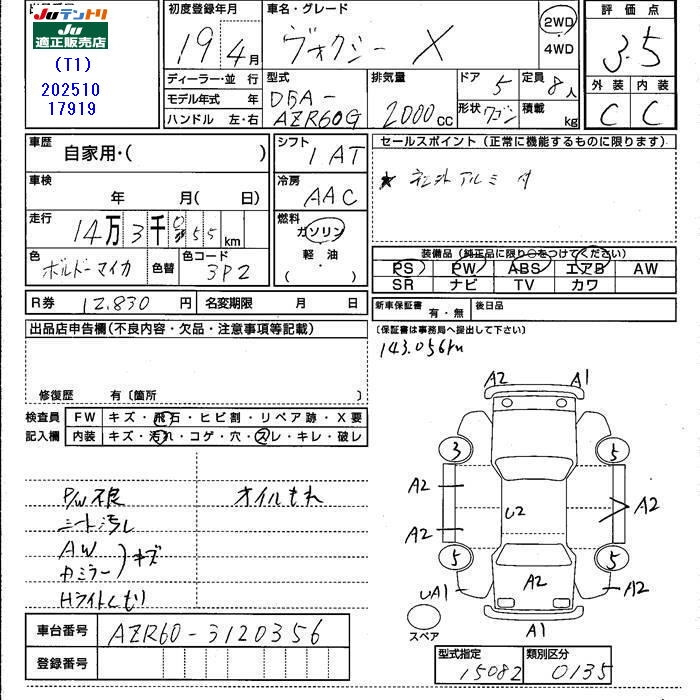 JUテントリ
JU
適正販売店
(T1)
202510
17919
初度登録年月
19年4月
車名・グレード
ヴォクシー X
2WD
・
4WD
評価点
3.5
外装 内装
C C
ディーラー・並行
モデル年式 年
ハンドル 左・右
型式
DBA-
AZR60G
排気量
2000cc
ドア 5
定員 8人
形状 ワゴン
積載 kg
車歴
自家用・( )
シフト
IAT
セールスポイント(正常に機能するものに限ります)
車検
年 月(日)
冷房
AAC
走行
14万3千055km
燃料
ガソリン
・
軽油
( )
色
ボルドーマイカ
色替
色コード
3P2
装備品(純正品に限り○をつけてください)
PS PW ABS エアB AW
SR ナビ TV カワ
R券 12,830円
名変期限 月 日
新車保証書 有・無
後日品
(保証書は事務局へ提出して下さい)
出品店申告欄(不良内容・欠品・注意事項等記載)
143.056km
修復歴 有〔箇所 〕
検査員 FW キズ・飛石・ヒビ割・リペア跡・X要
記入欄 内装 キズ・汚れ・コゲ・穴・スレ・キレ・破レ
P/W不良 オイルもれ
シート汚レ
AW
カミラー
キズ
Hライトくもり
A2 A1
3 5
A2 A2
A2 U2
5 5
UA1 A2 A2
A1
スペア
車台番号 AZR60-3120356
登録番号
型式指定 15082
類別区分 0135